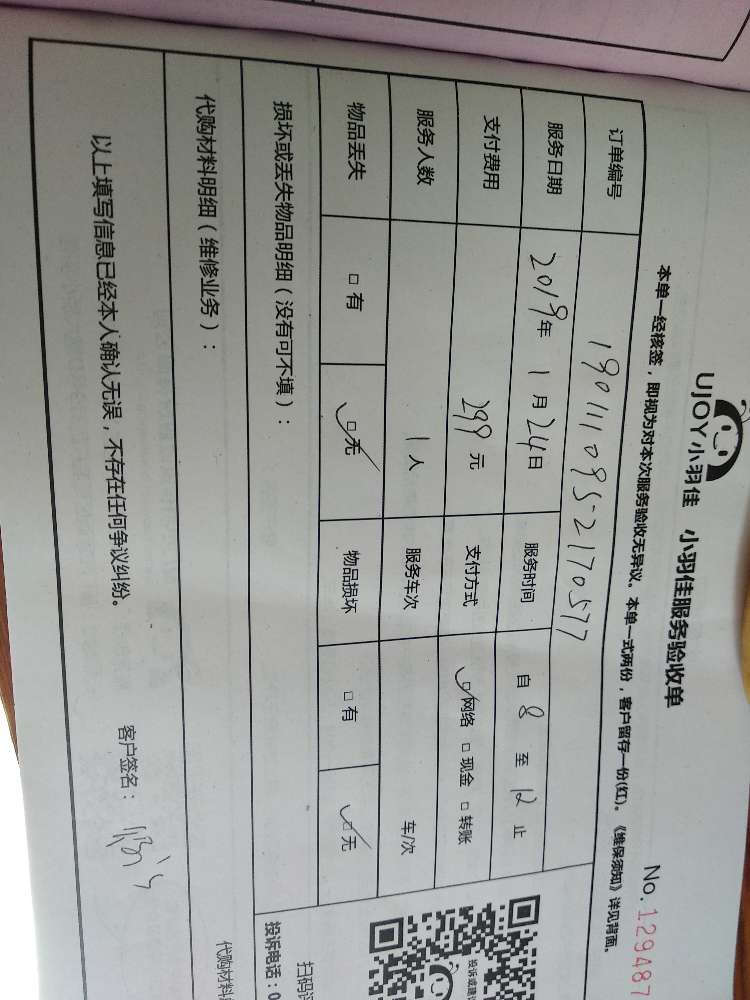 UJOY小羽佳 小羽佳服务验收单
No.129487
本单一经核签，即视为对本次服务验收无异议。本单一式两份，客户留存一份(红)。《维保须知》详见背面。
订单编号 190111095-2170577
服务日期 2019年 1月 24日 服务时间 自 8 至 12 止
支付费用 299 元 支付方式 ☑网络 □现金 □转账
服务人数 1人 服务车次 车/次
物品丢失 □有 ☑无 物品损坏 □有 ☑无
损坏或丢失物品明细（没有可不填）：
代购材料明细（维修业务）：
以上填写信息已经本人确认无误，不存在任何争议纠纷。
客户签名：
投诉或建议
扫码
投诉电话：0
代购材料